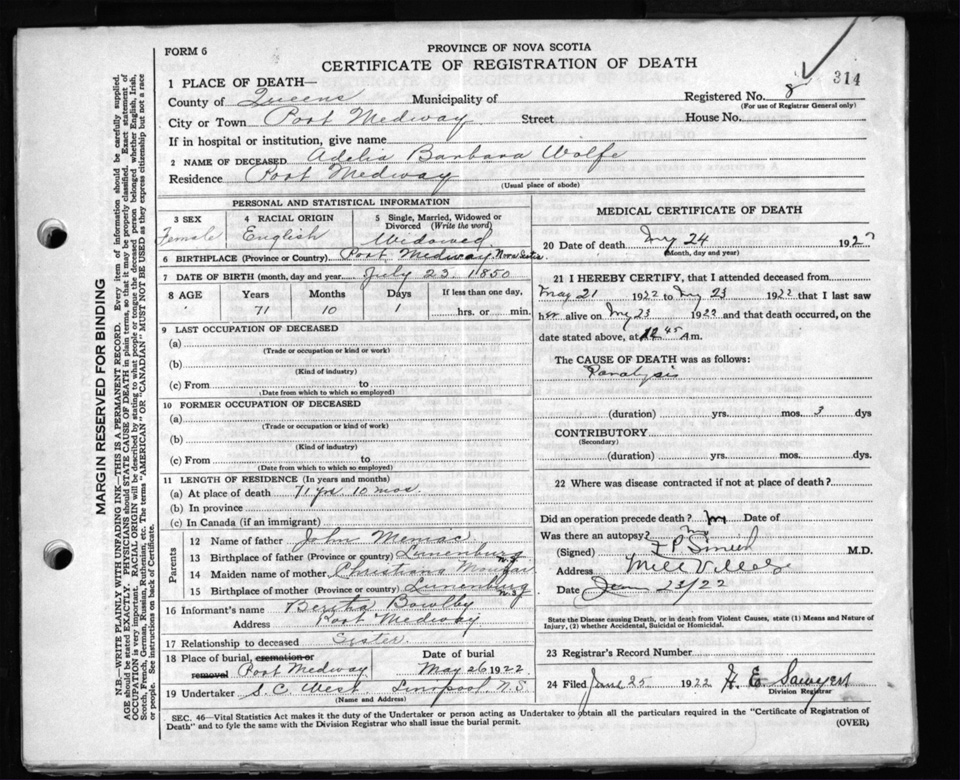 314
FORM 6
PROVINCE OF NOVA SCOTIA
CERTIFICATE OF REGISTRATION OF DEATH
1 PLACE OF DEATH—
County of Queens Municipality of Registered No. 8
(For use of Registrar General only)
City or Town Port Medway Street House No.
If in hospital or institution, give name
2 NAME OF DECEASED Adelia Barbara Wolfe
Residence Port Medway
(Usual place of abode)
PERSONAL AND STATISTICAL INFORMATION
3 SEX 4 RACIAL ORIGIN 5 Single, Married, Widowed or
Divorced (Write the word)
Female English Widowed
6 BIRTHPLACE (Province or Country) Port Medway, Nova Scotia
7 DATE OF BIRTH (month, day and year) July 23. 1850
8 AGE Years Months Days If less than one day,
71 10 1 hrs. or min.
9 LAST OCCUPATION OF DECEASED
(a)
(Trade or occupation or kind or work)
(b)
(Kind of industry)
(c) From to
(Date from which to which so employed)
10 FORMER OCCUPATION OF DECEASED
(a)
(Trade or occupation or kind of work)
(b)
(Kind of industry)
(c) From to
(Date from which to which so employed)
11 LENGTH OF RESIDENCE (In years and months)
(a) At place of death 71 yrs. 10 mos
(b) In province
(c) In Canada (if an immigrant)
Parents
12 Name of father John
13 Birthplace of father (Province or country) Lunenburg N.S.
14 Maiden name of mother Christiana
15 Birthplace of mother (Province or country) Lunenburg N.S.
16 Informant's name Bertha Bowlby
Address Port Medway
17 Relationship to deceased Sister.
18 Place of burial, cremation or Date of burial
removal Port Medway May 26 1922
19 Undertaker S. C. West Liverpool N.S.
(Name and Address)
MEDICAL CERTIFICATE OF DEATH
20 Date of death My 24 1922
(Month, day and year)
21 I HEREBY CERTIFY, that I attended deceased from
May 21 1922 to My 23 1922 that I last saw
her alive on My 23 1922 and that death occurred, on the
date stated above, at 12 45 A m.
The CAUSE OF DEATH was as follows:
Paralysis
(duration) yrs. mos. 3 dys
CONTRIBUTORY
(Secondary)
(duration) yrs. mos. dys.
22 Where was disease contracted if not at place of death?
Did an operation precede death? Date of
Was there an autopsy?
(Signed) M.D.
Address Mill Village
Date 23/22
State the Disease causing Death, or in death from Violent Causes, state (1) Means and Nature of
Injury, (2) whether Accidental, Suicidal or Homicidal.
23 Registrar's Record Number
24 Filed June 25 1922 H. E. Sawyers
Division Registrar
SEC. 46—Vital Statistics Act makes it the duty of the Undertaker or person acting as Undertaker to obtain all the particulars required in the "Certificate of Registration of
Death" and to fyle the same with the Division Registrar who shall issue the burial permit. (OVER)
MARGIN RESERVED FOR BINDING
N.B.—WRITE PLAINLY WITH UNFADING INK—THIS IS A PERMANENT RECORD. Every item of information should be carefully supplied.
AGE should be stated EXACTLY. PHYSICIANS should STATE CAUSE OF DEATH in plain terms, so that it may be properly classified. Exact statement of
OCCUPATION is very important. RACIAL ORIGIN will be described by stating to what people or tongue the deceased person belonged, whether English, Irish,
Scotch, French, German, Russian, Ruthenian, etc. The terms "AMERICAN" OR "CANADIAN" MUST NOT BE USED as they express citizenship but not a race
or people. See instructions on back of Certificate.